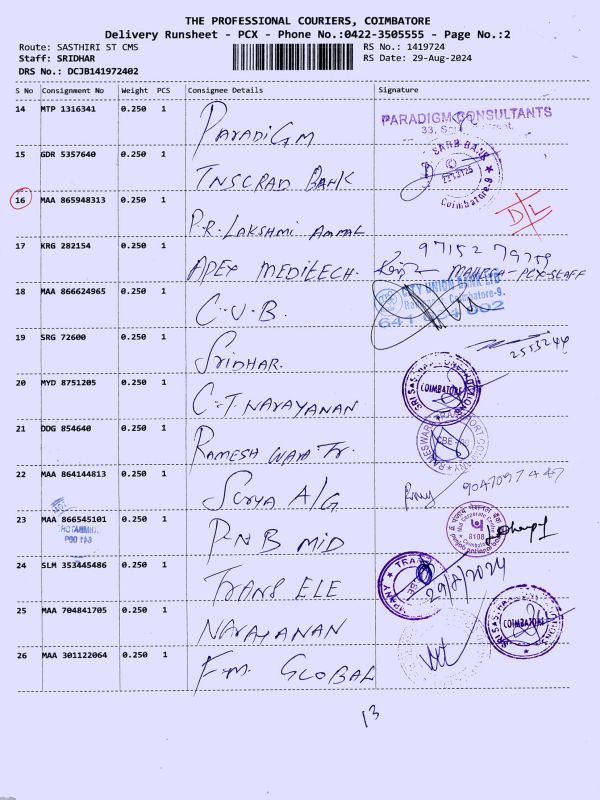 THE PROFESSIONAL COURIERS, COIMBATORE
Delivery Runsheet - PCX - Phone No.:0422-3505555 - Page No.:2
Route: SASTHIRI ST CMS
RS No.: 1419724
Staff: SRIDHAR
RS Date: 29-Aug-2024
DRS No.: DCJB141972402
S No Consignment No Weight PCS Consignee Details Signature
14 MTP 1316341 0.250 1 ParadiGM
PARADIGM CONSULTANTS
15 GDR 5357640 0.250 1 TNSCRAD BANK
Coimbatore-9
16 MAA 865948313 0.250 1 P.R. LAKSHMI AMMAL
D/L
17 KRG 282154 0.250 1 APEX MEDITECH.
97152 79759
MAHESH-PCX-STAFF
18 MAA 866624965 0.250 1 C.U.B.
CITY UNION BANK LTD
Coimbatore-9.
19 SRG 72600 0.250 1 SRIDHAR.
2553244
20 MYD 8751205 0.250 1 C.T. NARAYANAN
COIMBATORE
21 DDG 854640 0.250 1 RAMESH
22 MAA 864144813 0.250 1 SURYA A/G
9047097447
23 MAA 866545101 0.250 1 PNB MID
8108
24 SLM 353445486 0.250 1 TRANS ELE
29/8/2024
25 MAA 704841705 0.250 1 NARAYANAN
COIMBATORE
26 MAA 301122064 0.250 1 F.M. GLOBAL
13